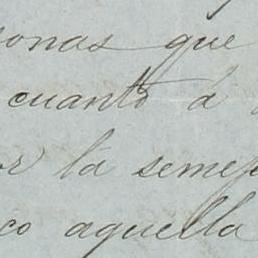 sonas que
cuanto á
or la semej
co aquella